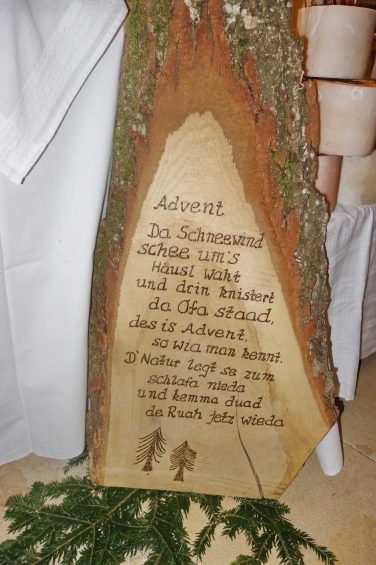 Advent
Da Schneewind
schee um's
Häusl waht
und drin knistert
da Ofa staad,
des is Advent,
so wia man kennt.
D'Natur legt se zum
schlafa nieda
und kemma duad
de Ruah jetz wieda